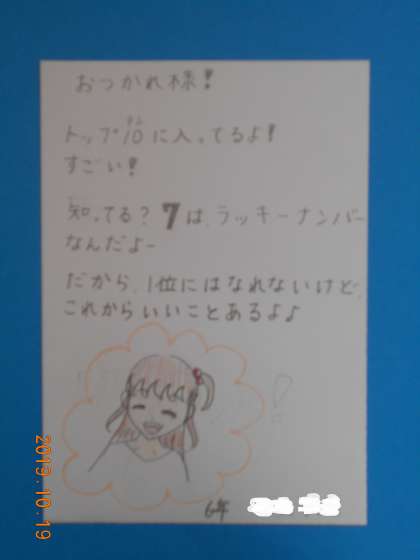 おつかれ様!
トップ10に入ってるよ!
すごい!
知ってる? 7は、ラッキーナンバー
なんだよー
だから、1位にはなれないけど、
これからいいことあるよ♪
6年
2019.10.19